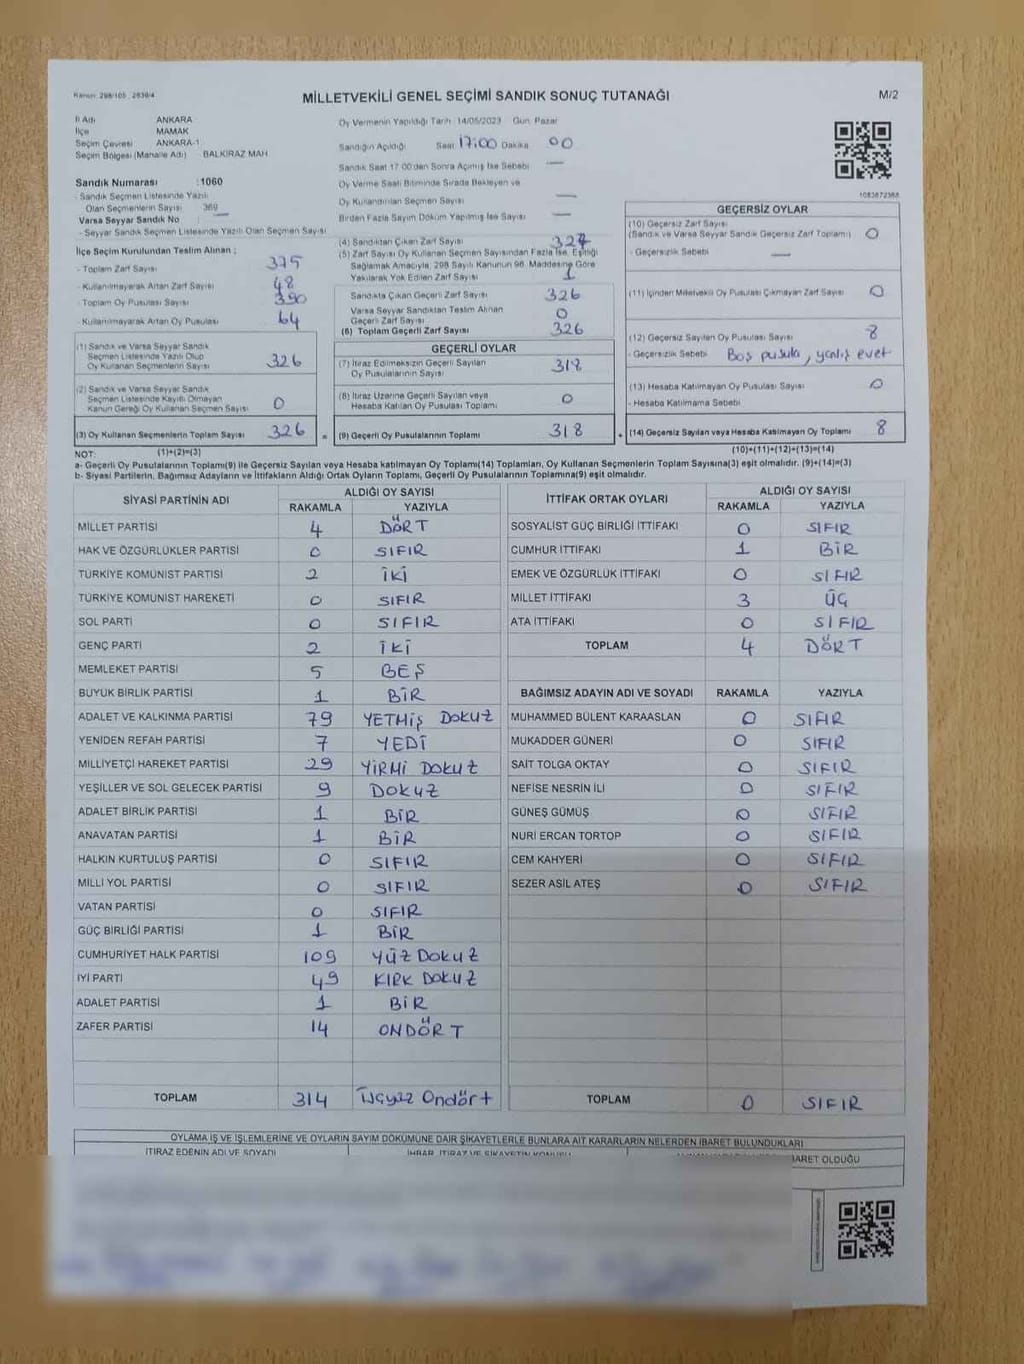 Kanun: 298/105 2839/4
MİLLETVEKİLİ GENEL SEÇİMİ SANDIK SONUÇ TUTANAĞI
M/2
İl Adı ANKARA
İlçe MAMAK
Seçim Çevresi ANKARA-1
Seçim Bölgesi (Mahalle Adı) BALKIRAZ MAH
Sandık Numarası :1060
- Sandık Seçmen Listesinde Yazılı
Olan Seçmenlerin Sayısı 369
Varsa Seyyar Sandık No :
- Seyyar Sandık Seçmen Listesinde Yazılı Olan Seçmen Sayısı
İlçe Seçim Kurulundan Teslim Alınan ;
- Toplam Zarf Sayısı 375
- Kullanılmayarak Artan Zarf Sayısı 48
- Toplam Oy Pusulası Sayısı 390
- Kullanılmayarak Artan Oy Pusulası 64
(1) Sandık ve Varsa Seyyar Sandık
Seçmen Listesinde Yazılı Olup
Oy Kullanan Seçmenlerin Sayısı 326
(2) Sandık ve Varsa Seyyar Sandık
Seçmen Listesinde Kayıtlı Olmayan
Kanun Gereği Oy Kullanan Seçmen Sayısı 0
(3) Oy Kullanan Seçmenlerin Toplam Sayısı 326 =
Oy Vermenin Yapıldığı Tarih 14/05/2023 Gün Pazar
Sandığın Açıldığı Saat 17:00 Dakika 00
Sandık Saat 17:00'den Sonra Açılmış İse Sebebi —
Oy Verme Saati Bitiminde Sırada Bekleyen ve
Oy Kullandırılan Seçmen Sayısı —
Birden Fazla Sayım Döküm Yapılmış İse Sayısı —
(4) Sandıktan Çıkan Zarf Sayısı 327
(5) Zarf Sayısı Oy Kullanan Seçmen Sayısından Fazla İse, Eşitliği
Sağlamak Amacıyla, 298 Sayılı Kanunun 98. Maddesine Göre
Yakılarak Yok Edilen Zarf Sayısı 1
Sandıkta Çıkan Geçerli Zarf Sayısı 326
Varsa Seyyar Sandıktan Teslim Alınan
Geçerli Zarf Sayısı 0
(6) Toplam Geçerli Zarf Sayısı 326
GEÇERLİ OYLAR
(7) İtiraz Edilmeksizin Geçerli Sayılan
Oy Pusulalarının Sayısı 318
(8) İtiraz Üzerine Geçerli Sayılan veya
Hesaba Katılan Oy Pusulası Toplamı 0
(9) Geçerli Oy Pusulalarının Toplamı 318 +
1083872388
GEÇERSİZ OYLAR
(10) Geçersiz Zarf Sayısı
(Sandık ve Varsa Seyyar Sandık Geçersiz Zarf Toplamı) 0
- Geçersizlik Sebebi —
(11) İçinden Milletvekili Oy Pusulası Çıkmayan Zarf Sayısı 0
(12) Geçersiz Sayılan Oy Pusulası Sayısı 8
- Geçersizlik Sebebi Boş pusula, yanlış evet
(13) Hesaba Katılmayan Oy Pusulası Sayısı 0
- Hesaba Katılmama Sebebi
(14) Geçersiz Sayılan veya Hesaba Katılmayan Oy Toplamı 8
NOT: (1)+(2)=(3) (10)+(11)+(12)+(13)=(14)
a- Geçerli Oy Pusulalarının Toplamı(9) ile Geçersiz Sayılan veya Hesaba katılmayan Oy Toplamı(14) Toplamları, Oy Kullanan Seçmenlerin Toplam Sayısına(3) eşit olmalıdır. (9)+(14)=(3)
b- Siyasi Partilerin, Bağımsız Adayların ve İttifakların Aldığı Ortak Oyların Toplamı, Geçerli Oy Pusulalarının Toplamına(9) eşit olmalıdır.
SİYASİ PARTİNİN ADI ALDIĞI OY SAYISI
RAKAMLA YAZIYLA
MİLLET PARTİSİ 4 DÖRT
HAK VE ÖZGÜRLÜKLER PARTİSİ 0 SIFIR
TÜRKİYE KOMÜNİST PARTİSİ 2 İKİ
TÜRKİYE KOMÜNİST HAREKETİ 0 SIFIR
SOL PARTİ 0 SIFIR
GENÇ PARTİ 2 İKİ
MEMLEKET PARTİSİ 5 BEŞ
BÜYÜK BİRLİK PARTİSİ 1 BİR
ADALET VE KALKINMA PARTİSİ 79 YETMİŞ DOKUZ
YENİDEN REFAH PARTİSİ 7 YEDİ
MİLLİYETÇİ HAREKET PARTİSİ 29 YİRMİ DOKUZ
YEŞİLLER VE SOL GELECEK PARTİSİ 9 DOKUZ
ADALET BİRLİK PARTİSİ 1 BİR
ANAVATAN PARTİSİ 1 BİR
HALKIN KURTULUŞ PARTİSİ 0 SIFIR
MİLLİ YOL PARTİSİ 0 SIFIR
VATAN PARTİSİ 0 SIFIR
GÜÇ BİRLİĞİ PARTİSİ 1 BİR
CUMHURİYET HALK PARTİSİ 109 YÜZ DOKUZ
İYİ PARTİ 49 KIRK DOKUZ
ADALET PARTİSİ 1 BİR
ZAFER PARTİSİ 14 ONDÖRT
TOPLAM 314 Üçyüz Ondört
İTTİFAK ORTAK OYLARI ALDIĞI OY SAYISI
RAKAMLA YAZIYLA
SOSYALİST GÜÇ BİRLİĞİ İTTİFAKI 0 SIFIR
CUMHUR İTTİFAKI 1 BİR
EMEK VE ÖZGÜRLÜK İTTİFAKI 0 SIFIR
MİLLET İTTİFAKI 3 ÜÇ
ATA İTTİFAKI 0 SIFIR
TOPLAM 4 DÖRT
BAĞIMSIZ ADAYIN ADI VE SOYADI RAKAMLA YAZIYLA
MUHAMMED BÜLENT KARAASLAN 0 SIFIR
MUKADDER GÜNERİ 0 SIFIR
SAİT TOLGA OKTAY 0 SIFIR
NEFİSE NESRİN İLİ 0 SIFIR
GÜNEŞ GÜMÜŞ 0 SIFIR
NURİ ERCAN TORTOP 0 SIFIR
CEM KAHYERİ 0 SIFIR
SEZER ASİL ATEŞ 0 SIFIR
TOPLAM 0 SIFIR
OYLAMA İŞ VE İŞLEMLERİNE VE OYLARIN SAYIM DÖKÜMÜNE DAİR ŞİKAYETLERLE BUNLARA AİT KARARLARIN NELERDEN İBARET BULUNDUKLARI
İTİRAZ EDENİN ADI VE SOYADI
İBARET OLDUĞU